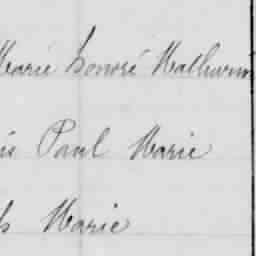 Marie honoré Mathurin
is Paul Marie
h Marie